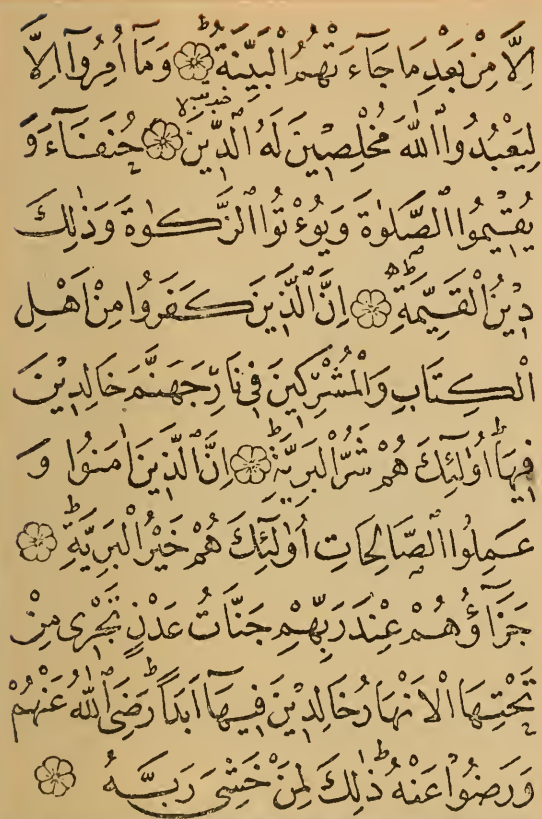 اِلَّا مِنْ بَعْدِ مَا جَٓاءَتْهُمُ الْبَيِّنَةُ ۞ وَمَٓا اُمِرُٓوا اِلَّا
لِيَعْبُدُوا اللّٰهَ مُخْلِصِينَ لَهُ الدِّينَ ۞ حُنَفَٓاءَ وَ
يُقِيمُوا الصَّلٰوةَ وَيُؤْتُوا الزَّكٰوةَ وَذٰلِكَ
دِينُ الْقَيِّمَةِ ۞ اِنَّ الَّذِينَ كَفَرُوا مِنْ اَهْلِ
الْكِتَابِ وَالْمُشْرِكِينَ فِي نَارِ جَهَنَّمَ خَالِدِينَ
فِيهَا اُولٰٓئِكَ هُمْ شَرُّ الْبَرِيَّةِ ۞ اِنَّ الَّذِينَ اٰمَنُوا وَ
عَمِلُوا الصَّالِحَاتِ اُولٰٓئِكَ هُمْ خَيْرُ الْبَرِيَّةِ ۞
جَزَٓاؤُهُمْ عِنْدَ رَبِّهِمْ جَنَّاتُ عَدْنٍ تَجْرِى مِنْ
تَحْتِهَا الْاَنْهَارُ خَالِدِينَ فِيهَٓا اَبَدًا رَضِىَ اللّٰهُ عَنْهُمْ
وَرَضُوا عَنْهُ ذٰلِكَ لِمَنْ خَشِىَ رَبَّهُ ۞